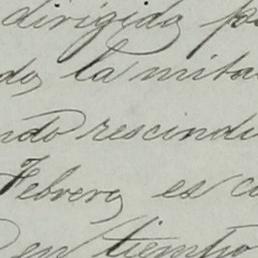 dirigido p
do, la mita
ndo rescindi
Febrero, es c
en tiempo